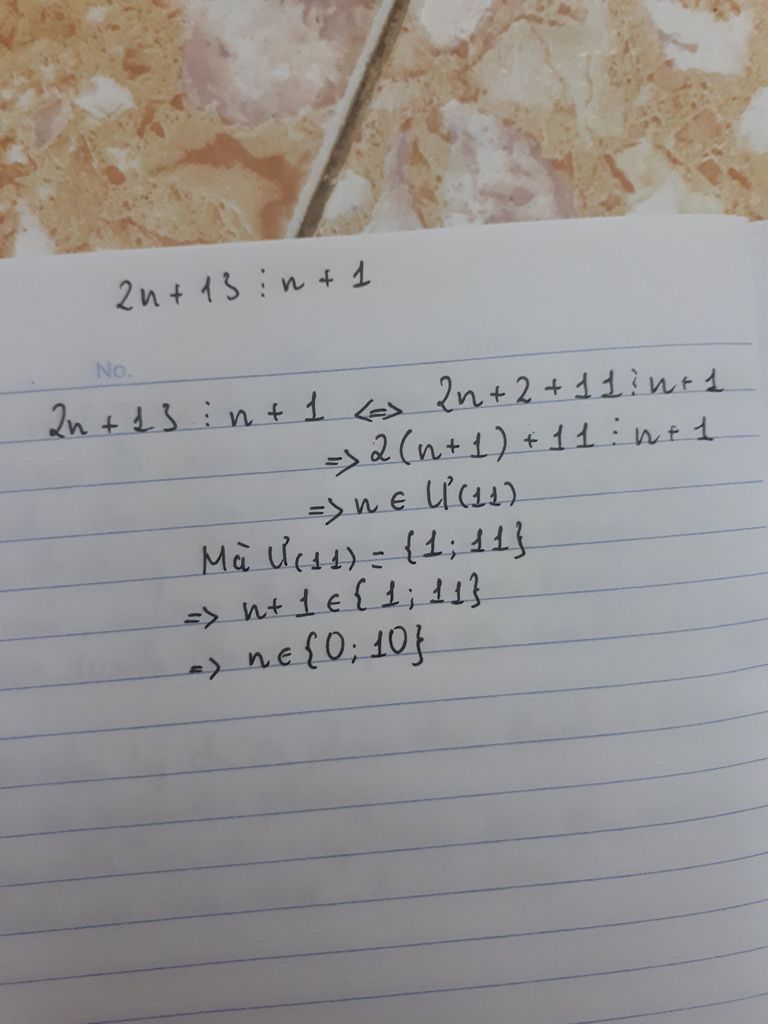 2n + 13 ⋮ n + 1
No.
2n + 13 ⋮ n + 1 <=> 2n + 2 + 11 ⋮ n + 1
=> 2(n+1) + 11 ⋮ n + 1
=> n ∈ Ư(11)
Mà Ư(11) = {1; 11}
=> n + 1 ∈ {1; 11}
=> n ∈ {0; 10}